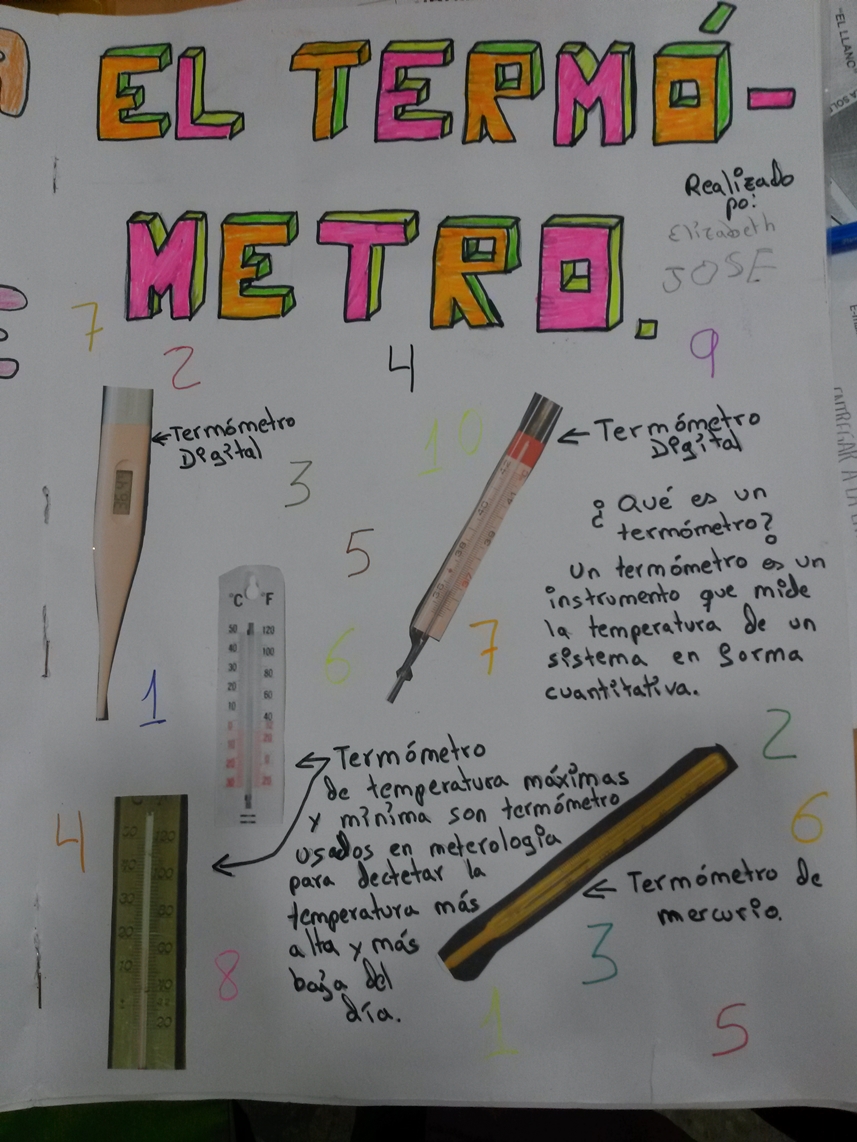 EL TERMÓ-
METRO.
Realizado
po:
Elizabeth
JOSE
7
2
4
9
←Termómetro
Digital
10
← Termómetro
Digital
3
5
¿Qué es un
termómetro?
Un termómetro es un
instrumento que mide
la temperatura de un
sistema en forma
cuantitativa.
°C °F
50 120
40 100
30 80
20 60
10 40
6
7
1
2
← Termómetro
de temperatura máximas
y mínima son termómetro
usados en meterologia
para dectetar la
temperatura más
alta y más
baja del
día.
4
6
← Termómetro de
mercurio.
3
8
1
5